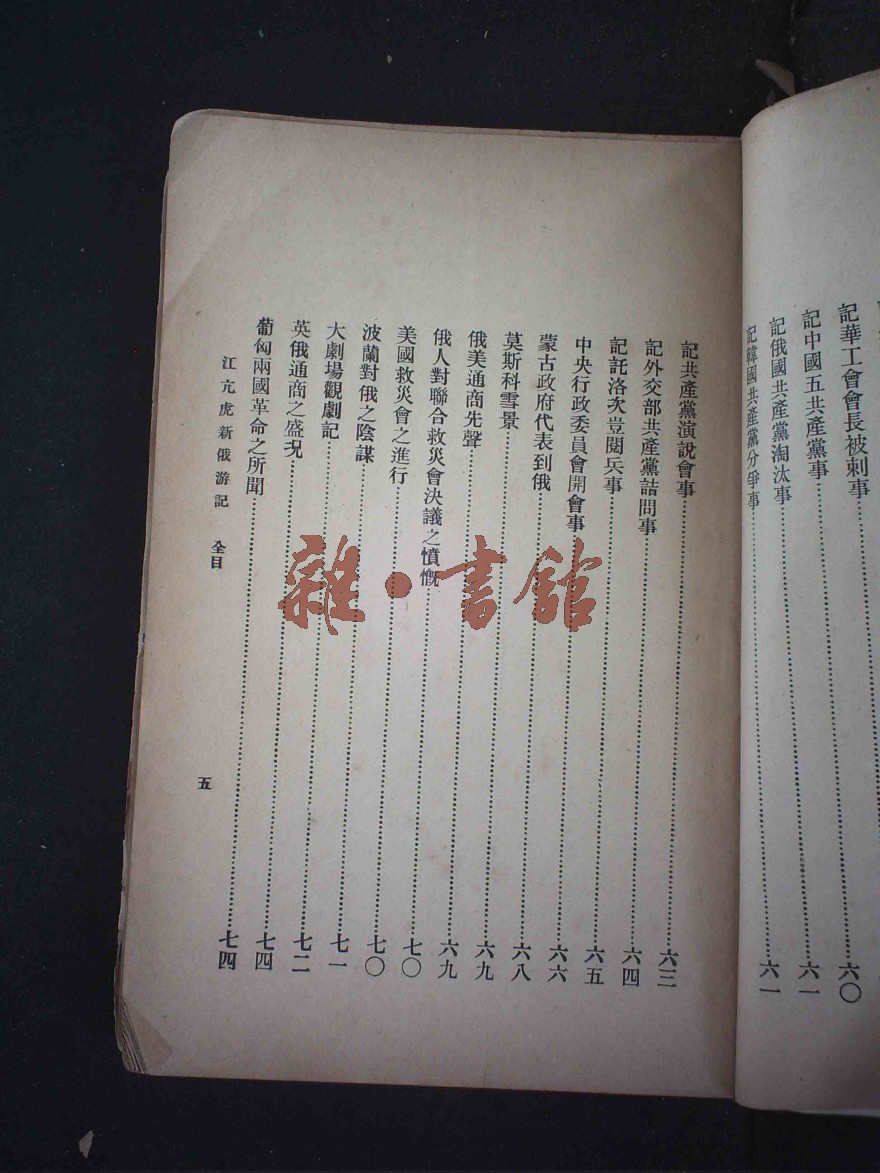 記華工會會長被刺事……六〇
記中國五共產黨事……六一
記俄國共產黨淘汰事……六一
記韓國共產黨分爭事
記共產黨演說會事……六三
記外交部共產黨詰問事……六四
記託洛次豈閱兵事……六五
中央行政委員會開會事……六六
蒙古政府代表到俄……六八
莫斯科雪景……六九
俄美通商先聲……六九
俄人對聯合救災會決議之憤慨……七〇
美國救災會之進行……七〇
波蘭對俄之陰謀……七一
大劇場觀劇記……七二
英俄通商之盛況……七四
葡匈兩國革命之所聞……七四
江亢虎新俄游記 全目
五
雜·書館